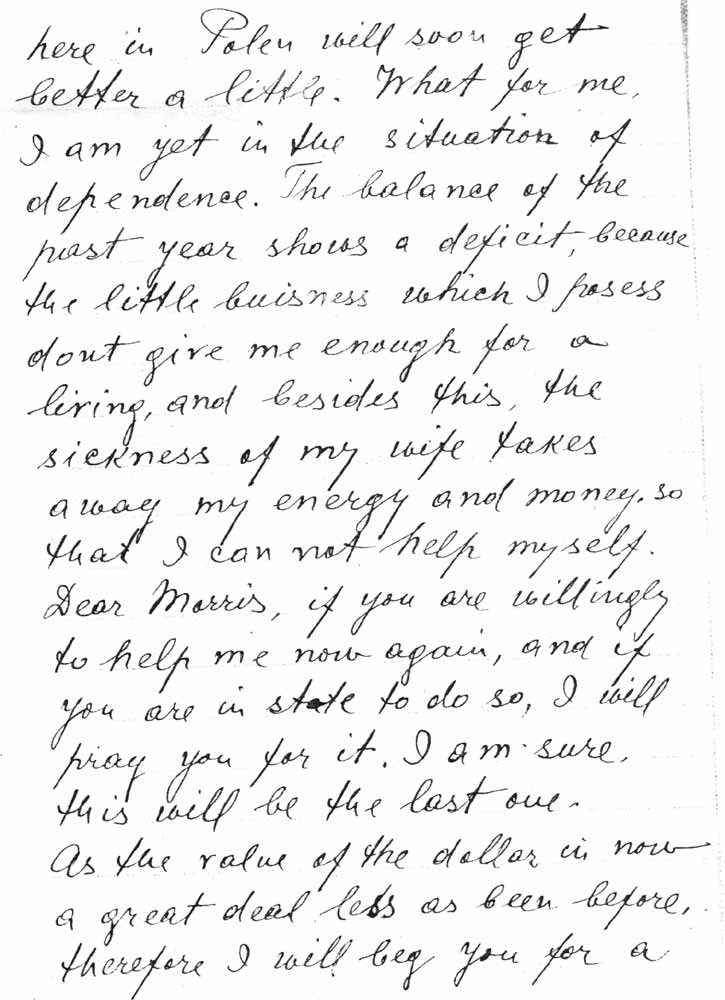 here in Polen will soon get
better a little. What for me,
I am yet in the situation of
dependence. The balance of the
past year shows a deficit, because
the little buisness which I posess
dont give me enough for a
living, and besides this, the
sickness of my wife takes
away my energy and money. so
that I can not help myself.
Dear Morris, if you are willingly
to help me now again, and if
you are in state to do so, I will
pray you for it. I am sure,
this will be the last one.
As the value of the dollar in now
a great deal less as been before,
therefore I will beg you for a